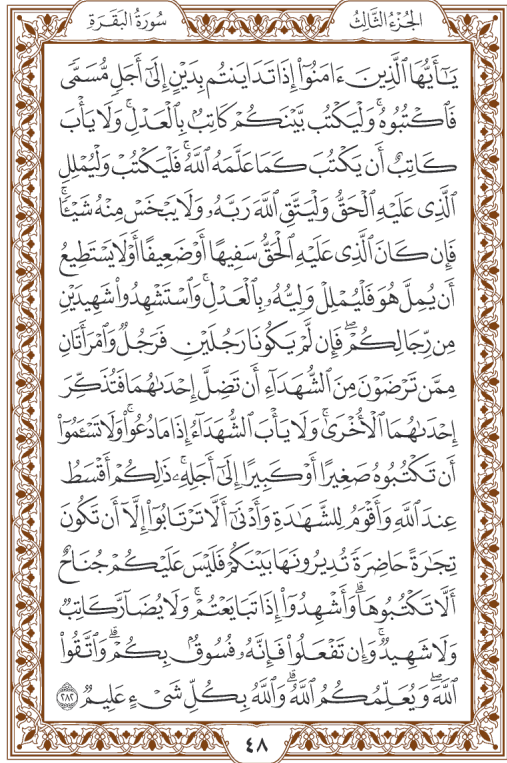 الجُزْءُ الثَّالِثُ
سُورَةُ البَقَرَةِ
يَٰٓأَيُّهَا ٱلَّذِينَ ءَامَنُوٓاْ إِذَا تَدَايَنتُم بِدَيْنٍ إِلَىٰٓ أَجَلٖ مُّسَمّٗى
فَٱكْتُبُوهُۚ وَلْيَكْتُب بَّيْنَكُمْ كَاتِبُۢ بِٱلْعَدْلِۚ وَلَا يَأْبَ
كَاتِبٌ أَن يَكْتُبَ كَمَا عَلَّمَهُ ٱللَّهُۚ فَلْيَكْتُبْ وَلْيُمْلِلِ
ٱلَّذِى عَلَيْهِ ٱلْحَقُّ وَلْيَتَّقِ ٱللَّهَ رَبَّهُۥ وَلَا يَبْخَسْ مِنْهُ شَيْـٔٗاۚ
فَإِن كَانَ ٱلَّذِى عَلَيْهِ ٱلْحَقُّ سَفِيهًا أَوْ ضَعِيفًا أَوْ لَا يَسْتَطِيعُ
أَن يُمِلَّ هُوَ فَلْيُمْلِلْ وَلِيُّهُۥ بِٱلْعَدْلِۚ وَٱسْتَشْهِدُواْ شَهِيدَيْنِ
مِن رِّجَالِكُمْۖ فَإِن لَّمْ يَكُونَا رَجُلَيْنِ فَرَجُلٌ وَٱمْرَأَتَانِ
مِمَّن تَرْضَوْنَ مِنَ ٱلشُّهَدَآءِ أَن تَضِلَّ إِحْدَىٰهُمَا فَتُذَكِّرَ
إِحْدَىٰهُمَا ٱلْأُخْرَىٰۚ وَلَا يَأْبَ ٱلشُّهَدَآءُ إِذَا مَا دُعُواْۚ وَلَا تَسْـَٔمُوٓاْ
أَن تَكْتُبُوهُ صَغِيرًا أَوْ كَبِيرًا إِلَىٰٓ أَجَلِهِۦۚ ذَٰلِكُمْ أَقْسَطُ
عِندَ ٱللَّهِ وَأَقْوَمُ لِلشَّهَٰدَةِ وَأَدْنَىٰٓ أَلَّا تَرْتَابُوٓاْ إِلَّآ أَن تَكُونَ
تِجَٰرَةً حَاضِرَةٗ تُدِيرُونَهَا بَيْنَكُمْ فَلَيْسَ عَلَيْكُمْ جُنَاحٌ
أَلَّا تَكْتُبُوهَاۗ وَأَشْهِدُوٓاْ إِذَا تَبَايَعْتُمْۚ وَلَا يُضَآرَّ كَاتِبٞ
وَلَا شَهِيدٞۚ وَإِن تَفْعَلُواْ فَإِنَّهُۥ فُسُوقُۢ بِكُمْۗ وَٱتَّقُواْ
ٱللَّهَۖ وَيُعَلِّمُكُمُ ٱللَّهُۗ وَٱللَّهُ بِكُلِّ شَىْءٍ عَلِيمٞ ٢٨٢
٤٨